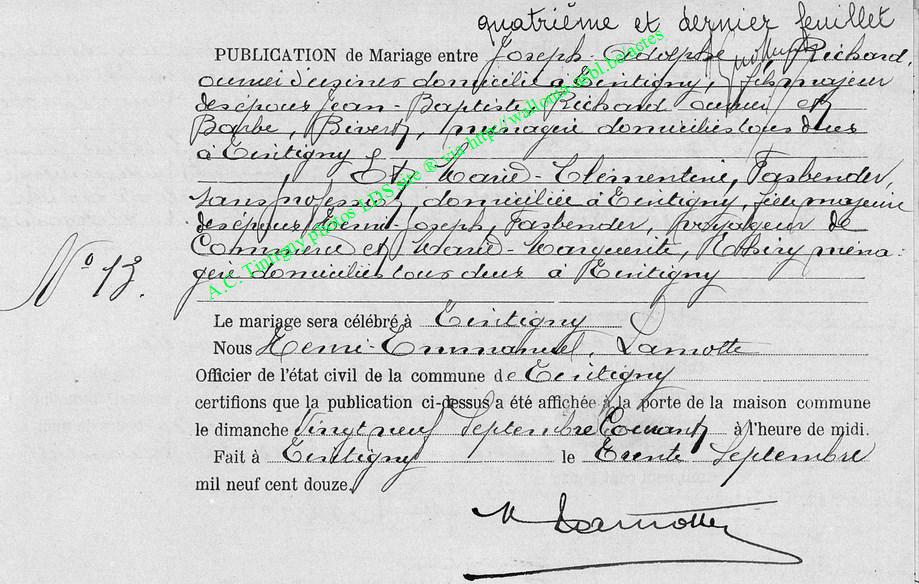 quatrième et dernier feuillet
PUBLICATION de Mariage entre Joseph-Adolphe Richard,
ouvrier d'usines domicilié à Tintigny, fils majeur
des époux Jean-Baptiste, Richard ouvrier et
Barbe, Bivert, ménagère domiciliés tous deux
à Tintigny &
Et Marie-Clémentine, Fasbender,
sans profession, domiciliée à Tintigny, fille majeure
des époux Joseph, Fasbender, voyageur de
Commerce et Marie-Marguerite, Thiry ména-
gère domiciliés tous deux à Tintigny
N° 13.
Le mariage sera célébré à Tintigny
Nous Henri-Emmanuel, Lamotte
Officier de l'état civil de la commune de Tintigny
certifions que la publication ci-dessus a été affichée à la porte de la maison commune
le dimanche Vingt neuf Septembre Courant à l'heure de midi.
Fait à Tintigny le Trente Septembre
mil neuf cent douze.
Lamotte
A.C. Tintigny photos LDS site ® via http://wallonia-asbl.be/actes